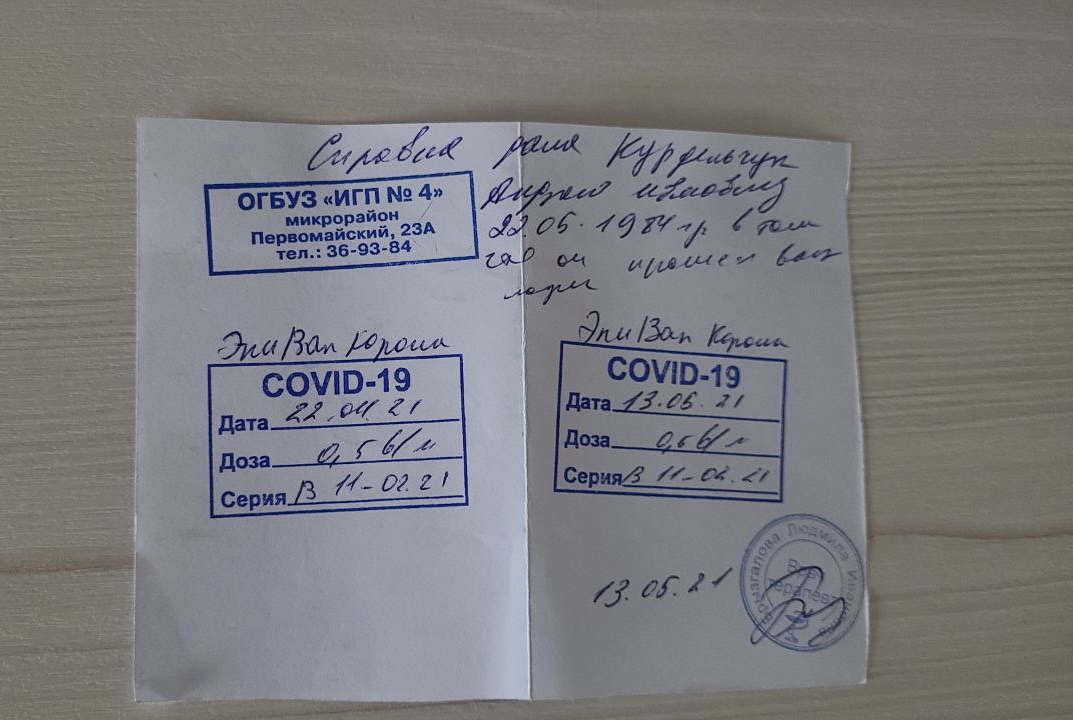 Справка дана Курдельчук
ОГБУЗ «ИГП № 4»
микрорайон
Первомайский, 23А
тел.: 36-93-84
22.05.1984 гр в том
что он прошел
ЭпиВак Корона
COVID-19
Дата 22.04.21
Доза 0,5 в/м
Серия В 11-02.21
ЭпиВак Корона
COVID-19
Дата 13.05.21
Доза 0,5 в/м
Серия В 11-02.21
13.05.21
Людмила
Врач
Терапевт